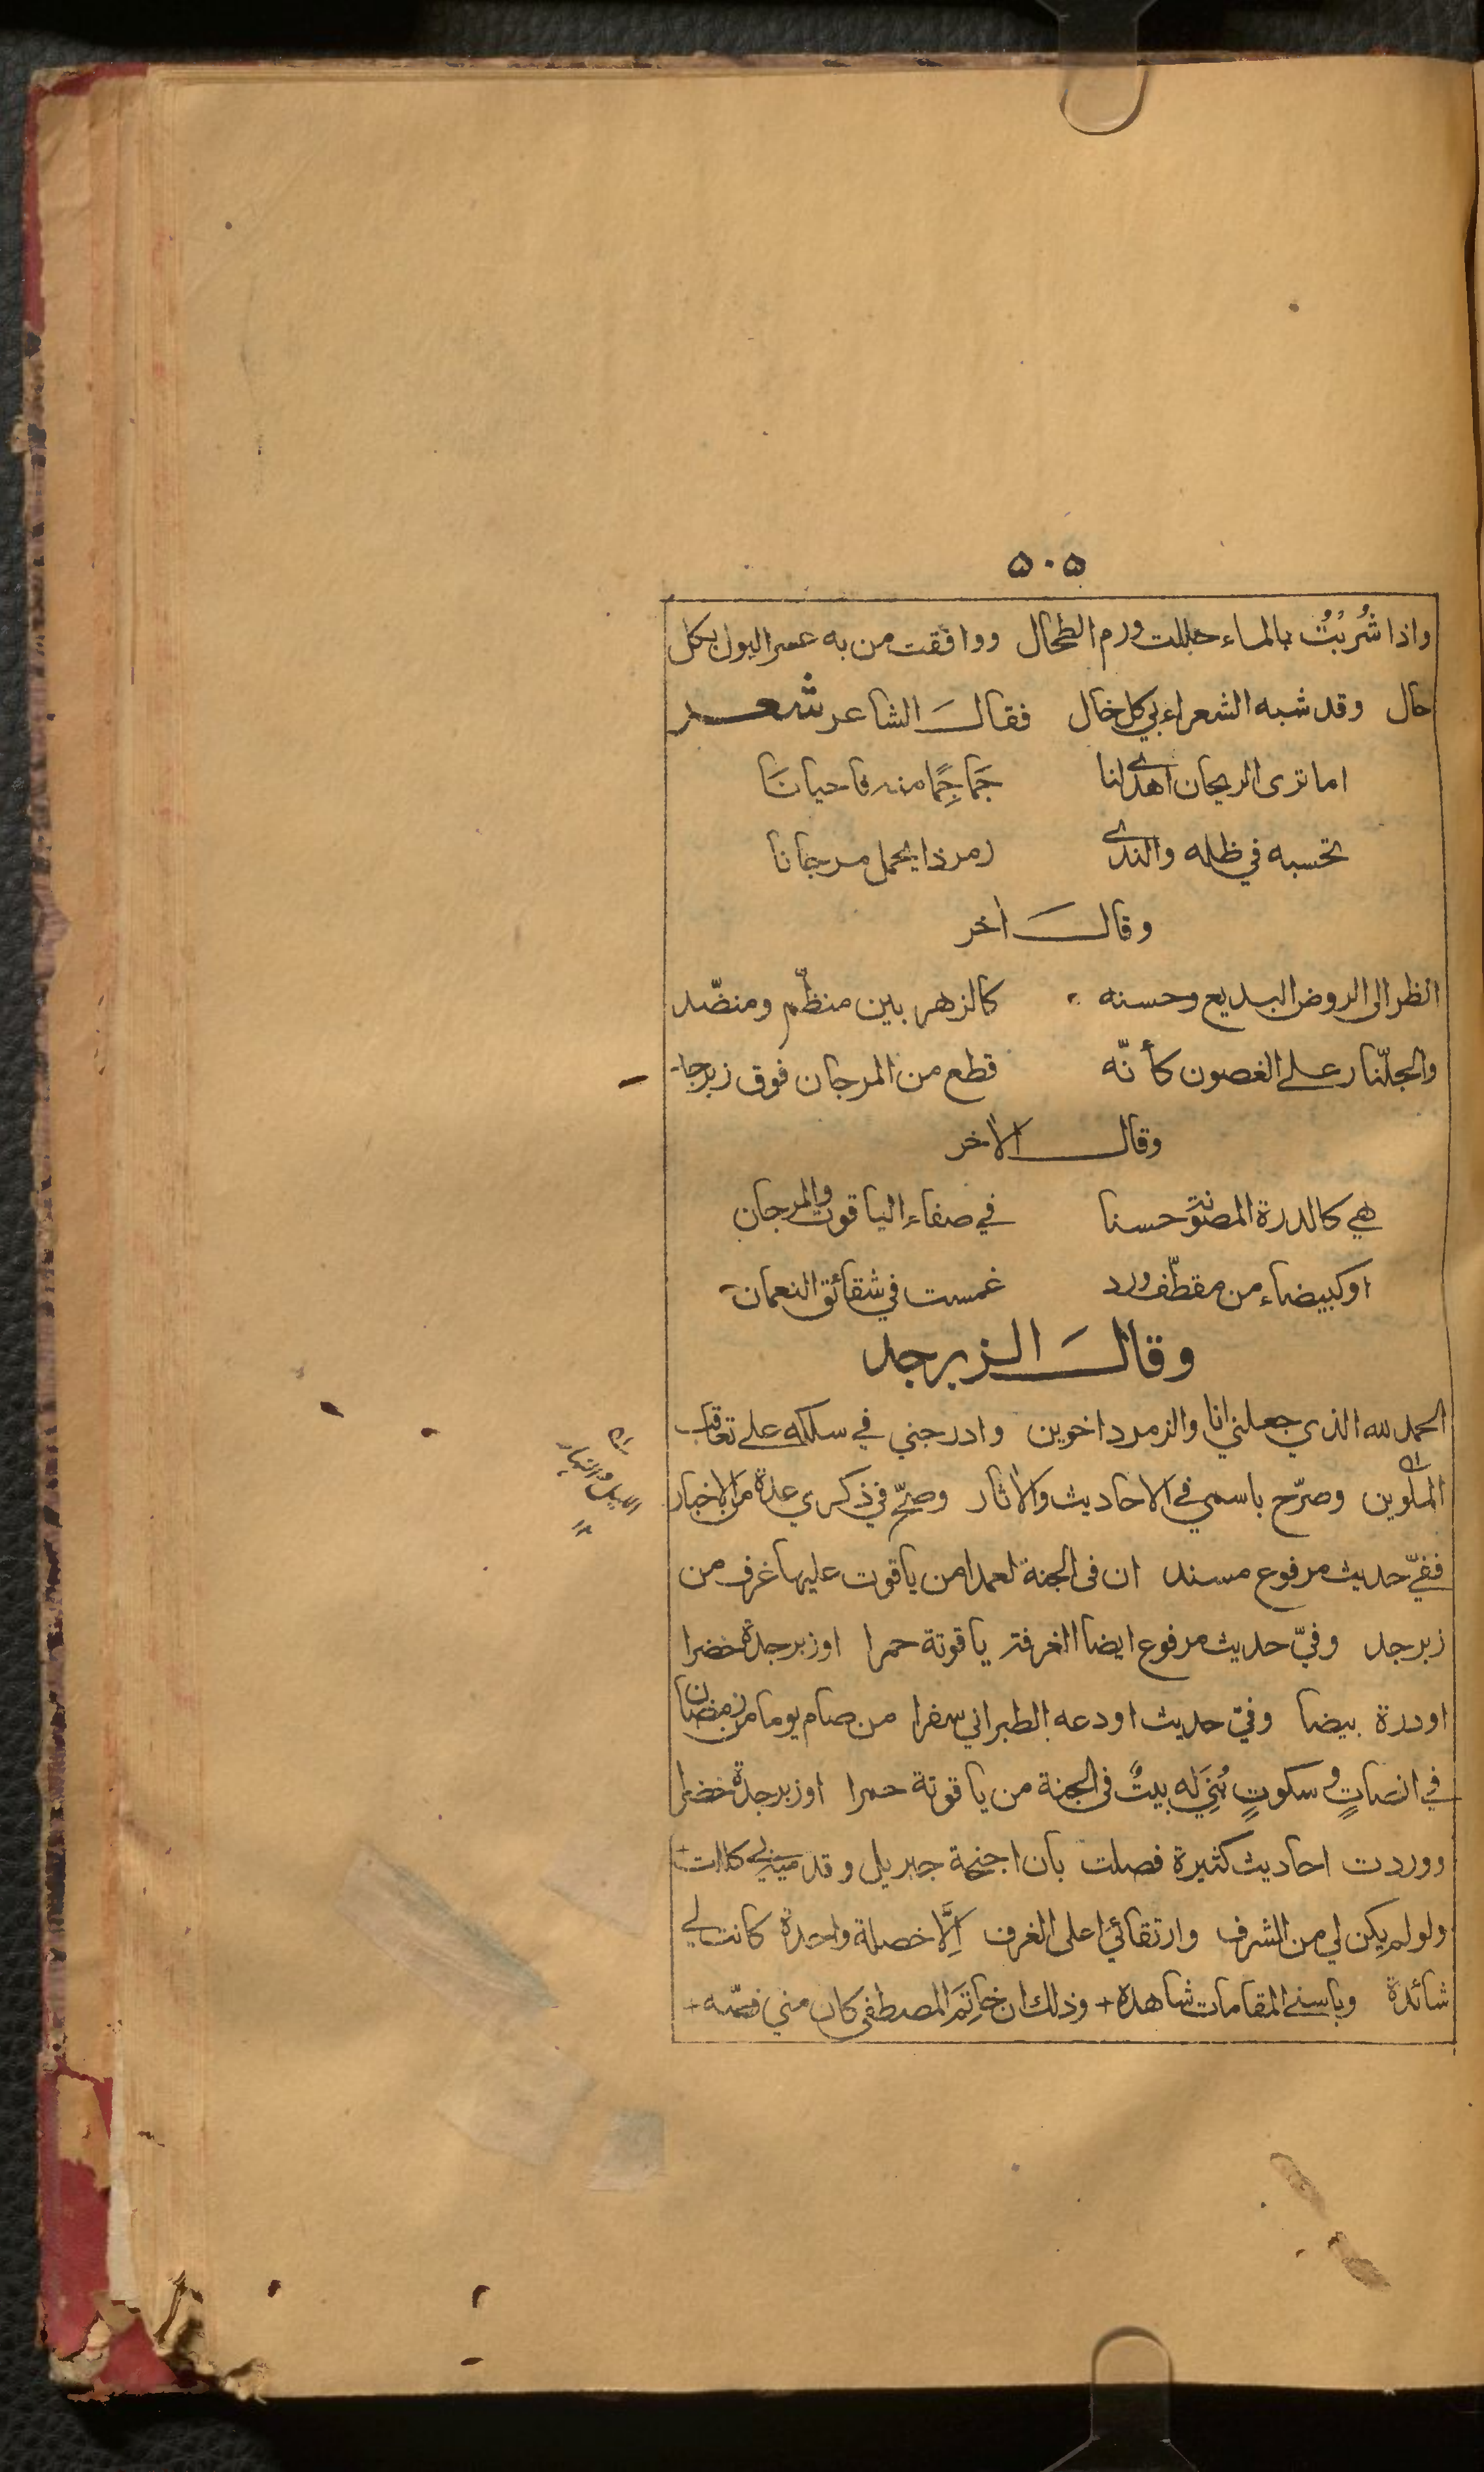 ٥٠٥
واذا شُرِبْتُ بالماء حللت ورم الطحال ووافقت من به عسر البول بكل
حال وقد شبه الشعراء بي كل خال فقال الشاعر شعر
اما ترى الريحان اهدى لنا جَماجِمًا منه فاحيانَا
تحسبه في ظله والندى زمرذا يحمل مرجانا
وقال اخر
انظر الى الروض البديع وحسنه كالزهر بين منظّم ومنضّد
والجلّنار على الغصون كأنّه قطع من المرجان فوق زبرجد
وقال الاخر
هي كالدرة المصونة حسنا في صفاء الياقوت والمرجان
او كبيضاء من مقطّف ورد غمست في شقائق النعمان
وقال الزبرجد
الحمد لله الذي جعلني انا والزمرد اخوين وادرجني في سلكه على تعاقب
الملوين وصرّح باسمي في الاحاديث والاثار وصحّ في ذكري عدة من الاخبار
اى الليل والنهار ١٢
ففيّ حديث مرفوع مسند ان في الجنة لعمدا من ياقوت عليها غرف من
زبرجد وفيّ حديث مرفوع ايضا الغرفة ياقوتة حمرا او زبرجدة خضرا
او درة بيضا وفي حديث اودعه الطبراني سفرا من صام يوما من رمضان
في انصاتٍ وسكوتٍ بُنِيَ له بيتٌ في الجنة من ياقوتة حمرا او زبرجدة خضرا
ووردت احاديث كثيرة فصلت بان اجنحة جبريل وقدميه لي
ولو لم يكن لي من الشرف وارتقائي اعلى الغرف اِلَّا خصلة واحدة كانت لي
شائدة وباسنى المقامات شاهدة + وذلك ان خاتِمَ المصطفى كان مني فصّه +